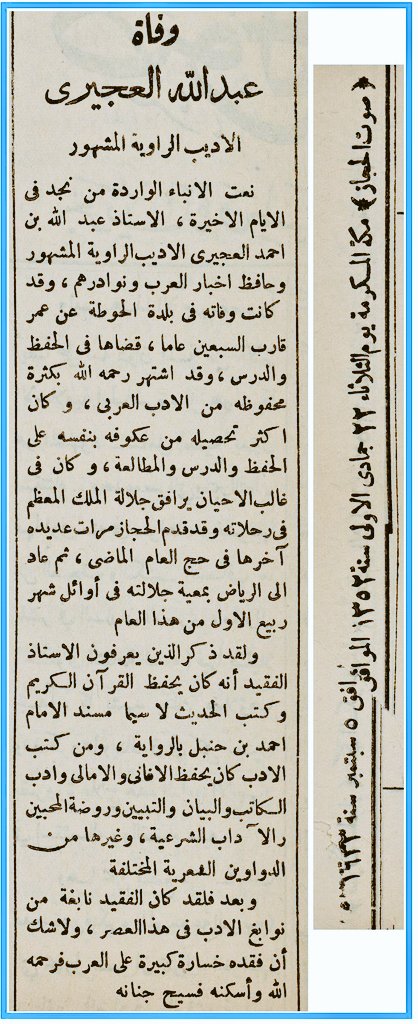 وفاة
عبدالله العجيرى
الاديب الراوية المشهور
نعت الانباء الواردة من نجد فى
الايام الاخيرة ، الاستاذ عبد الله بن
احمد العجيرى الاديب الراوية المشهور
وحافظ اخبار العرب ونوادرهم ، وقد
كانت وفاته فى بلدة الحوطة عن عمر
قارب السبعين عاما ، قضاها فى الحفظ
والدرس ، وقد اشتهر رحمه الله بكثرة
محفوظه من الادب العربى ، وكان
اكثر تحصيله من عكوفه بنفسه على
الحفظ والدرس والمطالعة ، وكان فى
غالب الاحيان يرافق جلالة الملك المعظم
فى رحلاته وقد قدم الحجاز مرات عديده
آخرها فى حج العام الماضى ، ثم عاد
الى الرياض بمعية جلالته فى أوائل شهر
ربيع الاول من هذا العام
ولقد ذكر الذين يعرفون الاستاذ
الفقيد أنه كان يحفظ القرآن الكريم
وكتب الحديث لا سيما مسند الامام
احمد بن حنبل بالرواية ، ومن كتب
الادب كان يحفظ الاغانى والامالى وادب
الكاتب والبيان والتبيين وروضة المحبين
والآداب الشرعية ، وغيرها من
الدواوين الشعرية المختلفة
وبعد فلقد كان الفقيد نابغة من
نوابغ الادب فى هذا العصر ، ولاشك
أن فقده خسارة كبيرة على العرب فرحمه
الله وأسكنه فسيح جنانه
﴿ صوت الحجاز ﴾ مكة المكرمة يوم الثلاثاء ٢٣ جمادى الاولى سنة ١٣٥٢ الموافق
وافق ٥ سبتمبر سنة ١٩٣٣